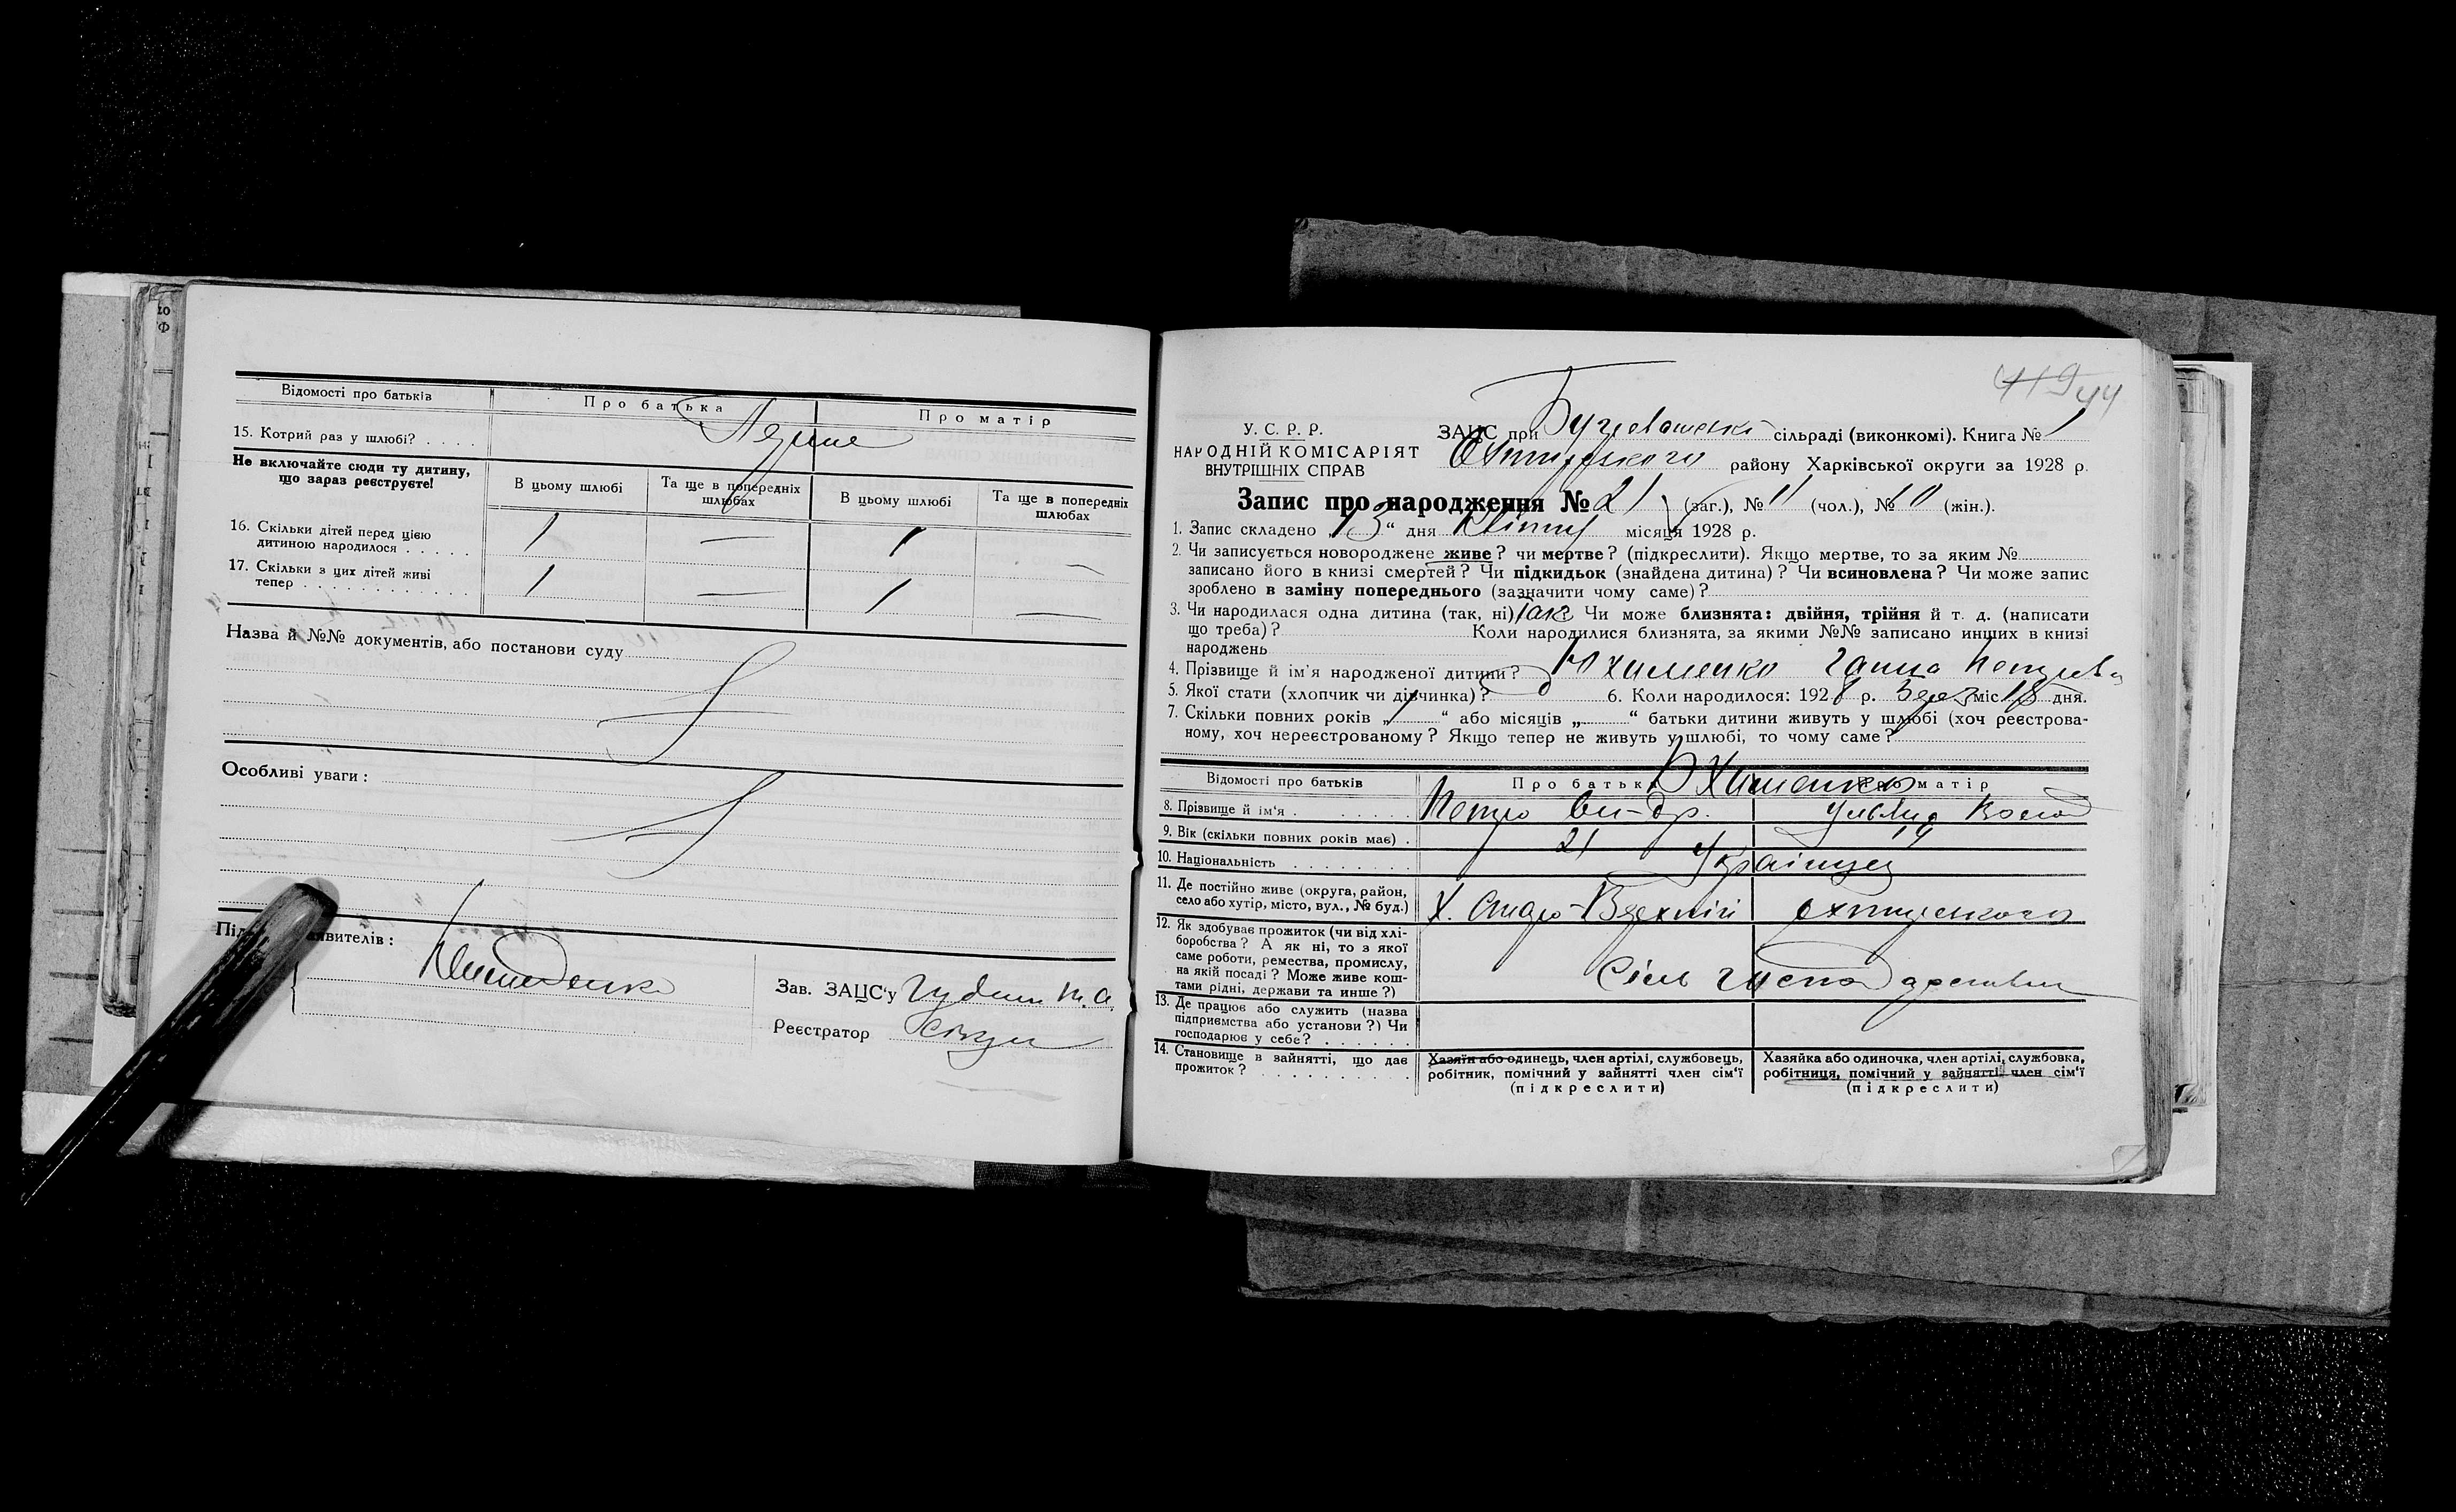 Відомості про батьків
Про батька
Про матір
15. Котрий раз у шлюбі? . . . .
Перше
Не включайте сюди ту дитину,
що зараз реєструєте!
В цьому шлюбі
Та ще в попередніх
шлюбах
В цьому шлюбі
Та ще в попередніх
шлюбах
16. Скільки дітей перед цією
дитиною народилося . . . . .
1 — 1 —
17. Скільки з цих дітей живі
тепер . . . . . . . . . . . .
1 — 1 —
Назва й №№ документів, або постанови суду
Особливі уваги:
аявителів:
Зав. ЗАЦС'у
Реєстратор
44
У. С. Р. Р.
НАРОДНІЙ КОМІСАРІЯТ
ВНУТРІШНІХ СПРАВ
ЗАЦС при сільраді (виконкомі). Книга № 1
району Харківської округи за 1928 р.
Запис про народження № 21 (заг.), № 11 (чол.), № 10 (жін.).
1. Запис складено „13“ дня Квітня місяця 1928 р.
2. Чи записується новороджене живе? чи мертве? (підкреслити). Якщо мертве, то за яким №
записано його в книзі смертей? Чи підкидьок (знайдена дитина)? Чи всиновлена? Чи може запис
зроблено в заміну попереднього (зазначити чому саме)?
3. Чи народилася одна дитина (так, ні) так Чи може близнята: двійня, трійня й т. д. (написати
що треба)? Коли народилися близнята, за якими №№ записано инших в книзі
народжень
4. Прізвище й ім'я народженої дитини? Юхименко Ганна Петровна
5. Якої стати (хлопчик чи дівчинка)? д 6. Коли народилось: 1928 р. Берез міс 18 дня.
7. Скільки повних років „ “ або місяців „ “ батьки дитини живуть у шлюбі (хоч реєстрова-
ному, хоч нереєстрованому? Якщо тепер не живуть у шлюбі, то чому саме?
Відомості про батьків
Про батька
Про матір
Юхименко
8. Прізвище й ім'я . . . . . . .
Петро
9. Вік (скільки повних років має) .
21 19
10. Національність . . . . . . .
Українці
11. Де постійно живе (округа, район,
село або хутір, місто, вул., № буд.)
12. Як здобуває прожиток (чи від хлі-
боробства? А як ні, то з якої
саме роботи, ремества, промислу,
на якій посаді? Може живе кош-
тами рідні, держави та инше?)
Сіль господарство
13. Де працює або служить (назва
підприємства або установи?) Чи
господарює у себе? . . . . . .
14. Становище в зайнятті, що дає
прожиток? . . . . . . . . . .
Хазяїн або одинець, член артілі, службовець,
робітник, помічний у зайнятті член сім'ї
(підкреслити)
Хазяйка або одиночка, член артілі, службовка,
робітниця, помічний у зайнятті член сім'ї
(підкреслити)